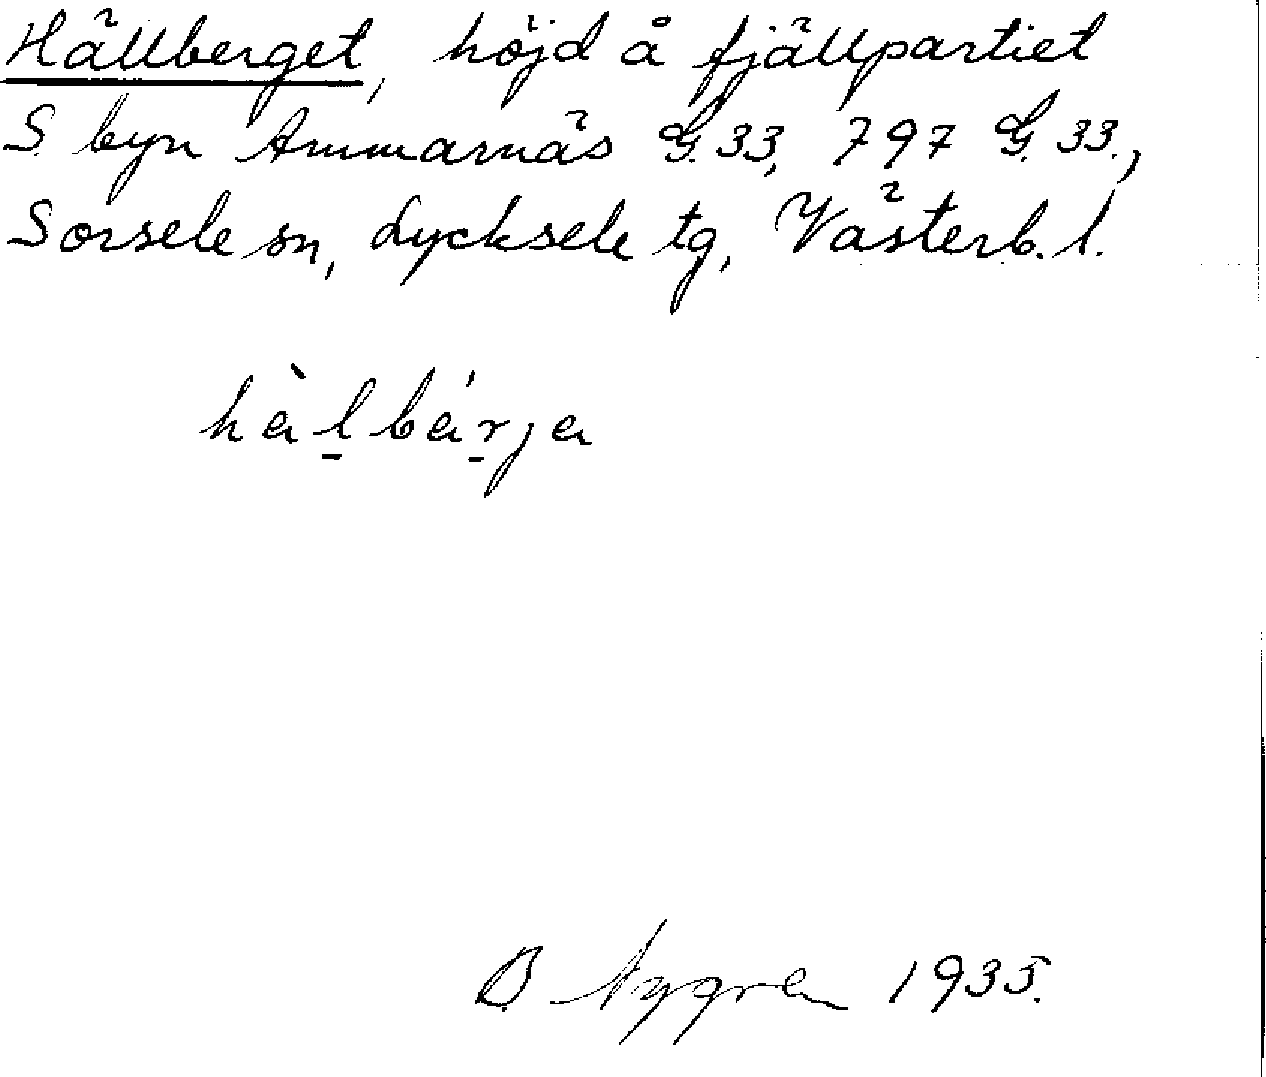 Hällberget, höjd å fjällpartiet
S. byn Ammarnäs G. 33, 797 G. 33.,
Sorsele sn, Lycksele tg, Västerb. l.
hàl̠bár̠ja
B. Nygren 1935.